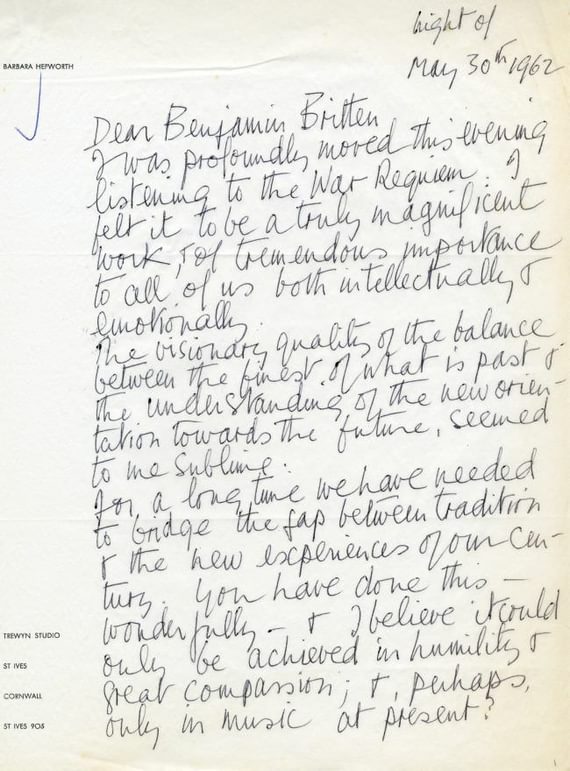 night of
May 30th 1962
BARBARA HEPWORTH
Dear Benjamin Britten
I was profoundly moved this evening
listening to the War Requiem. I
felt it to be a truly magnificent
work, & of tremendous importance
to all of us both intellectually &
emotionally.
The visionary quality of the balance
between the finest of what is past &
the understanding of the new orien-
tation towards the future, seemed
to me sublime.
For a long time we have needed
to bridge the gap between tradition
& the new experiences of our cen-
tury. You have done this —
wonderfully — & I believe it could
only be achieved in humility &
great compassion; &, perhaps,
only in music at present?
TREWYN STUDIO
ST IVES
CORNWALL
ST IVES 905